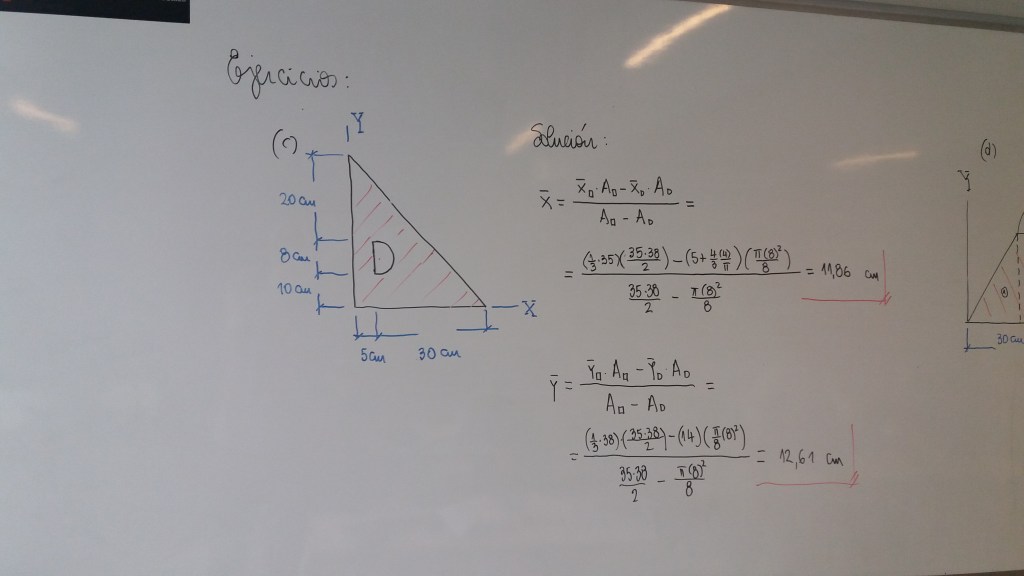 Ejercicios:
(c)
Y
20 cm
8 cm
10 cm
5 cm
30 cm
X
Solución:
X̄ = (X̄□ · A□ − X̄D · AD) / (A□ − AD) =
= ((1/3 · 35)(35·38/2) − (5 + 4(4)/3π)(π(8)²/8)) / (35·38/2 − π(8)²/8) = 11,86 cm
Ȳ = (Ȳ□ · A□ − ȲD · AD) / (A□ − AD) =
= ((1/3 · 38)(35·38/2) − (14)(π/8(8)²)) / (35·38/2 − π(8)²/8) = 12,61 cm
(d)
Y
30 cm